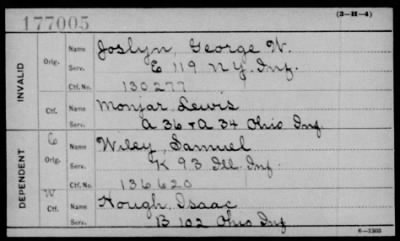 177005
(3-H-4)
INVALID
Orig.
Name
Joslyn, George W.
Serv.
E 119 N.Y. Inf.
Ctf. No.
130277
Ctf.
Name
Monjar, Lewis
Serv.
A 36 + A 34 Ohio Inf
DEPENDENT
C
Orig.
Name
Wiley, Samuel
Serv.
K 93 Ill Inf.
Ctf. No.
136620
W
Ctf.
Name
Hough, Isaac
Serv.
B 102 Ohio Inf